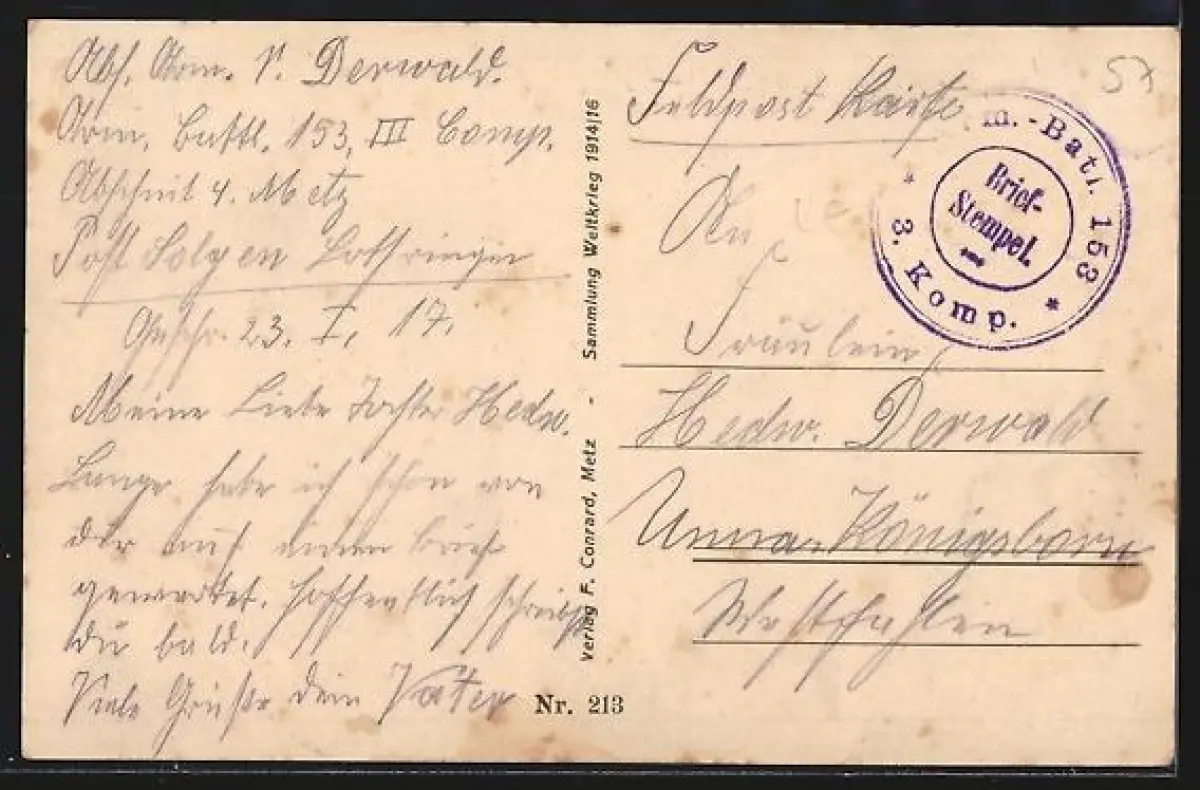 Abs. Arm. P. Derwald.
Arm. Battl. 153, III Comp.
Abschnit 4. Metz
Post Solgen Lothringen
Geschr. 23. I. 17.
Meine Liebe Tochter Hedw.
Lange habe ich schon von
dir auf einen Brief
gewartet. hoffentlich schreibst
du bald.
Viele Grüße dein Vater
Verlag F. Conrard, Metz • Sammlung Weltkrieg 1914/16
Nr. 213
Feldpost Karte
An
Fräulein
Hedw. Derwald
Unna-Königsborn
Westfahlen
m.-Batl. 153
3. Komp.
Brief-
Stempel.